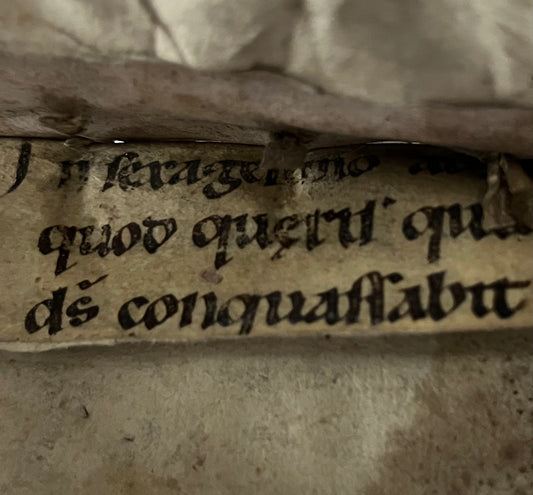 In sexagesimo
quod quęrit'
ds̄ conquaſſabit